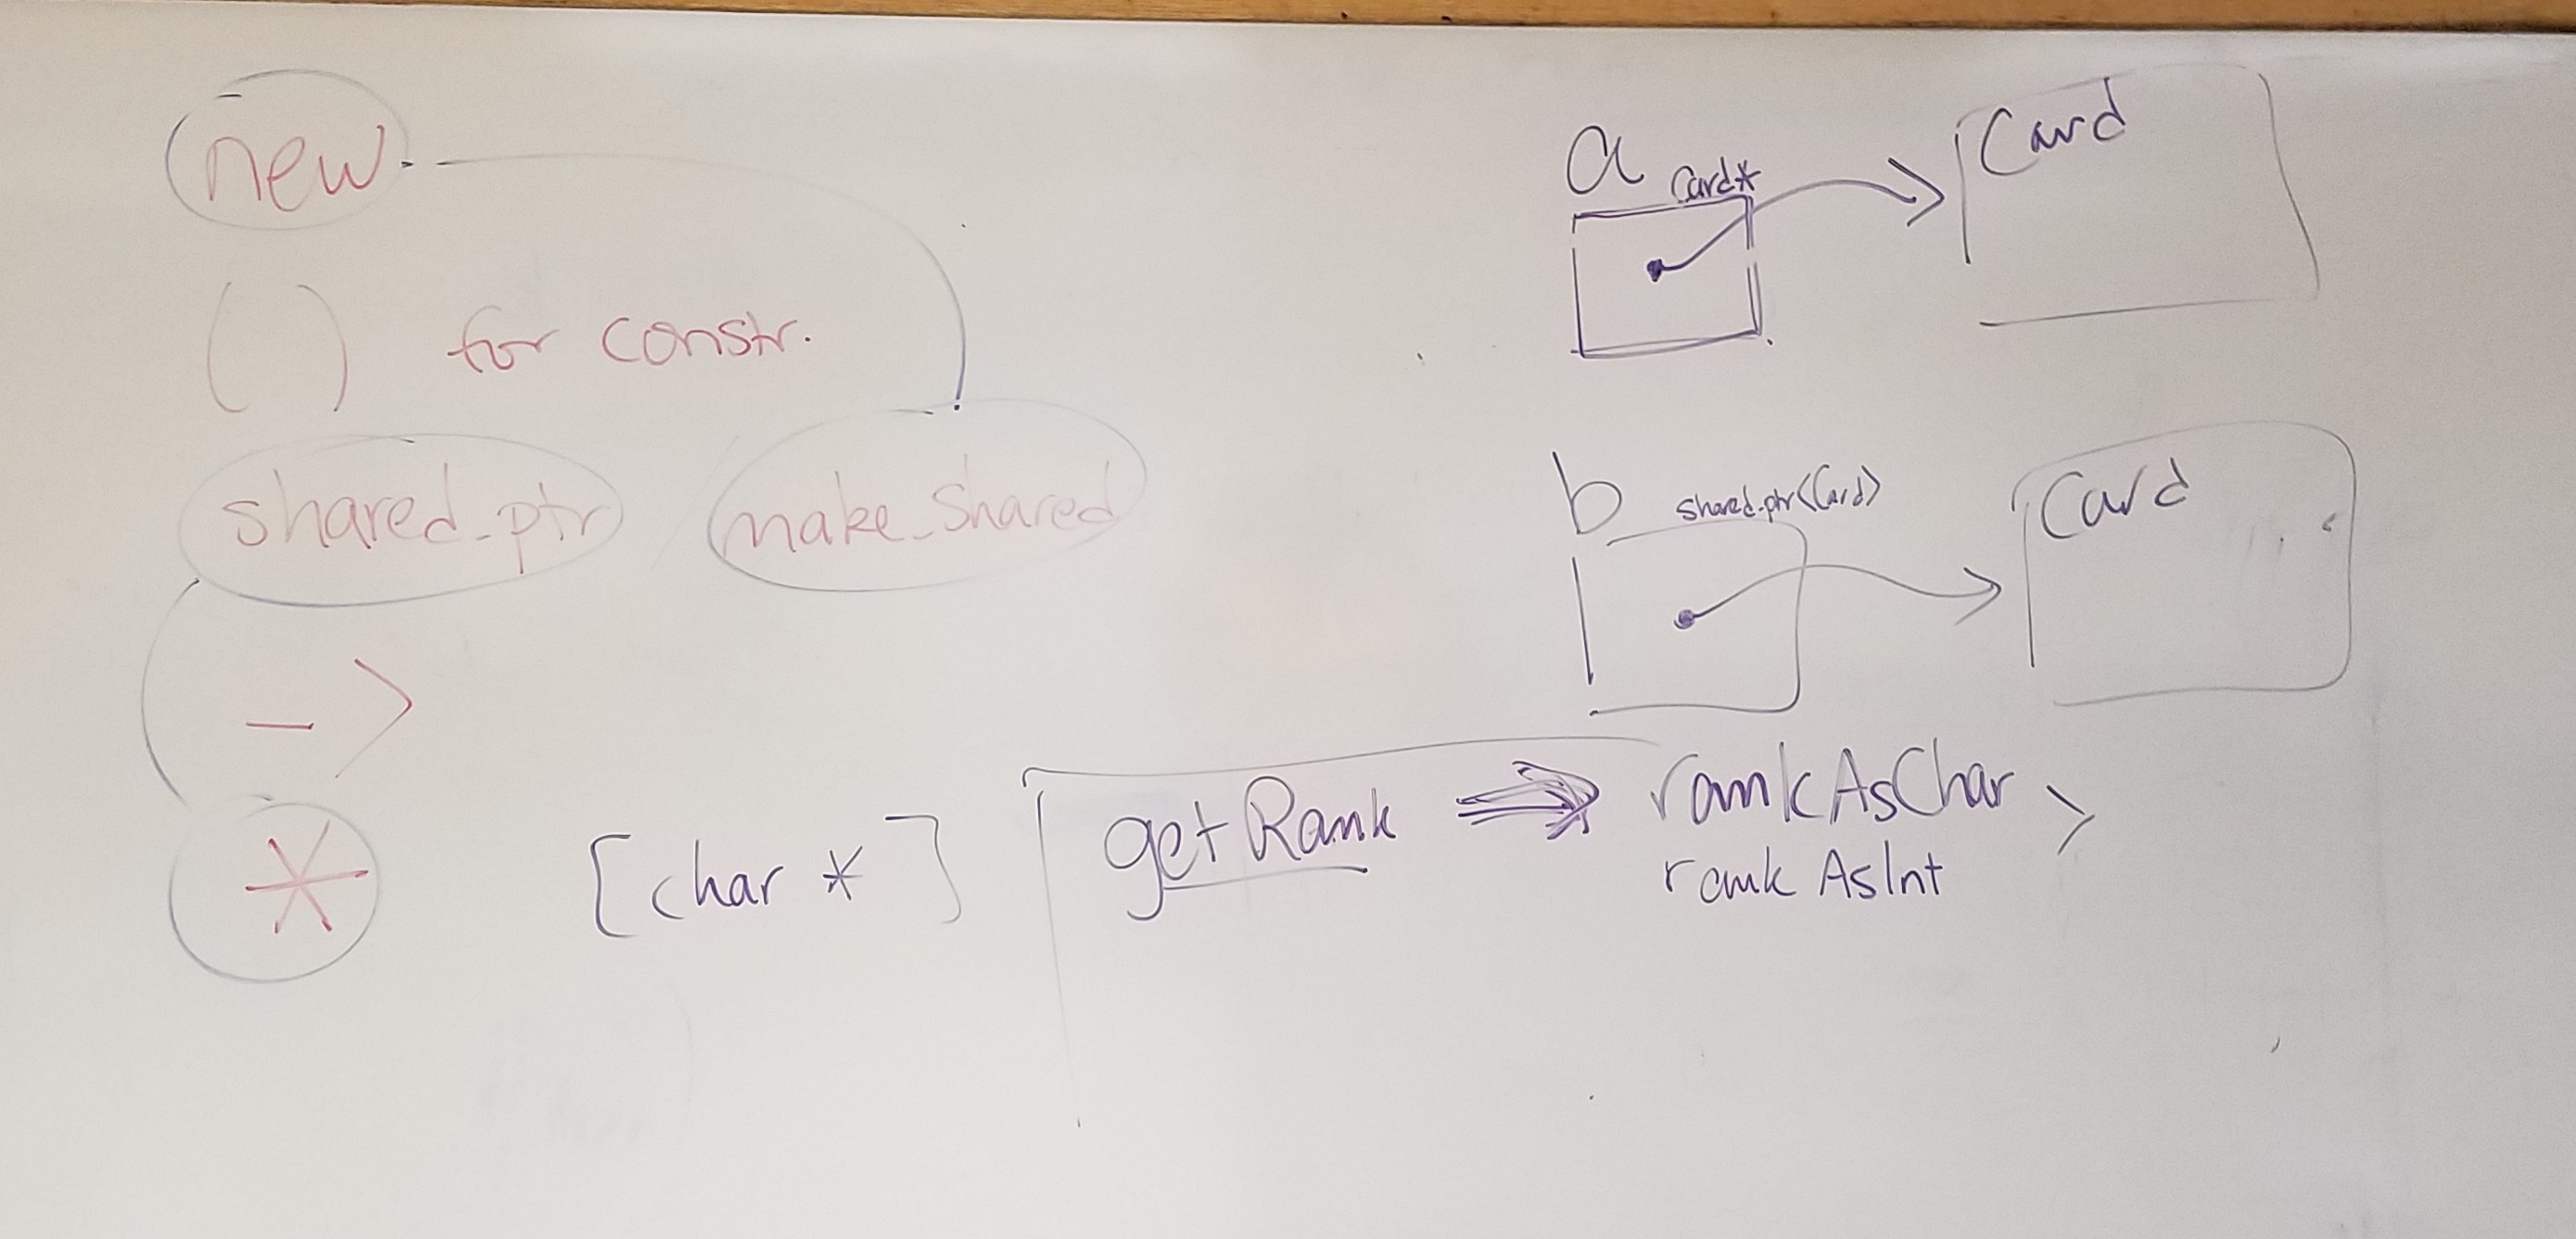 new
( ) for constr.
shared_ptr make_shared
->
*
[char *]
a Card*
Card
b shared_ptr<Card>
Card
getRank => rankAsChar >
rankAsInt